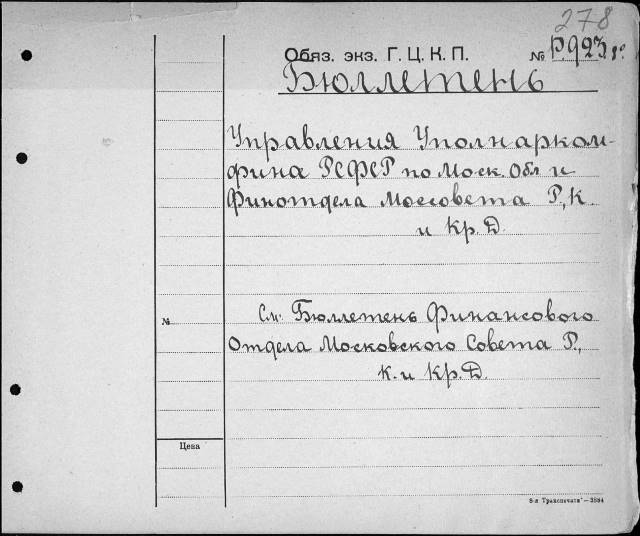 278
Обяз. экз. Г. Ц. К. П. № Р.923
Бюллетень
Управления Уполнарком-
фина РСФСР по Моск. Обл и
Финотдела Моссовета Р., К
и Кр. Д.
№
См. Бюллетень Финансового
Отдела Московского Совета Р.,
К. и Кр. Д.
Цена
8-я Транспечати — 3884